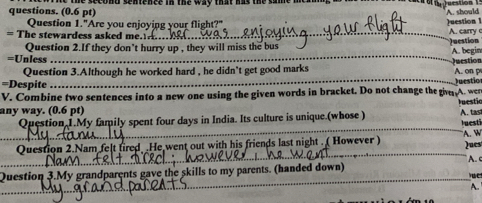 the second sentence in the way that has the same meaning as
questions. (0.6 pt)
Question 1."Are you enjoying your flight?"
= The stewardess asked me if her was enjoying your flight
Question 2.If they don't hurry up , they will miss the bus
=Unless
Question 3.Although he worked hard , he didn't get good marks
=Despite
V. Combine two sentences into a new one using the given words in bracket. Do not change the given
any way. (0.6 pt)
Question 1.My family spent four days in India. Its culture is unique.(whose )
My family
Question 2.Nam felt tired .He went out with his friends last night .( However )
Nam felt tired ; however , he went
Question 3.My grandparents gave the skills to my parents. (handed down)
My grandparents
A. should
Question 1
A. carry
Question
A. begin
Question
A. on
Question
A. were
Question
A. tast
Questi
A. W
Ques
A.
Que
A.